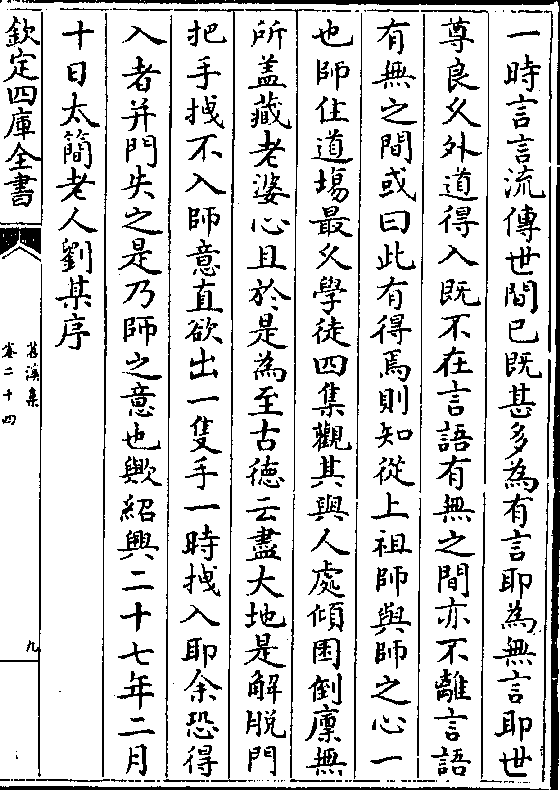 一時言言流傳世間已既甚多為有言耶為無言耶世
尊良乆外道得入既不在言語有無之間亦不離言語
有無之間或曰此有得焉則知從上祖師與師之心一
也師住道場最乆學徒四集觀其與人處傾囷倒廩無
所盖藏老婆心且於是為至古德云盡大地是解脱門
把手拽不入師意直欲出一隻手一時拽入耶余恐得
入者并門失之是乃師之意也歟紹興二十七年二月
十日太簡老人劉某序
欽定四庫全書
苕溪集
卷二十四
九